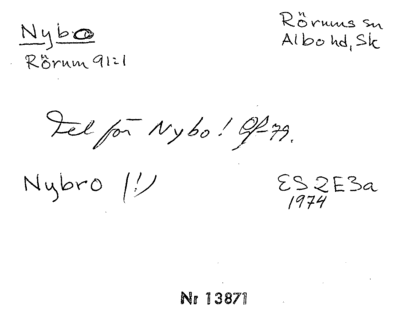 Nybo
Rörums sn
Rörum 91:1
Albo hd, Sk
Fel för Nybo!
Nybro (!)
ES 2E3a
1974
Nr 13871